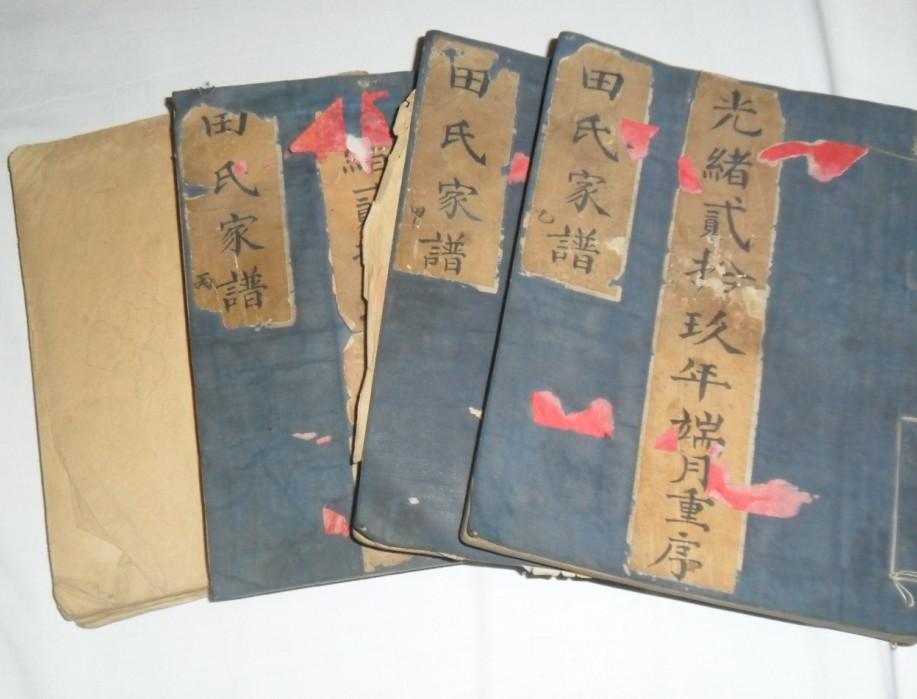 光緒貳拾玖年端月重序
田氏家譜
乙
田氏家譜
甲
緒貳
田氏家譜
丙